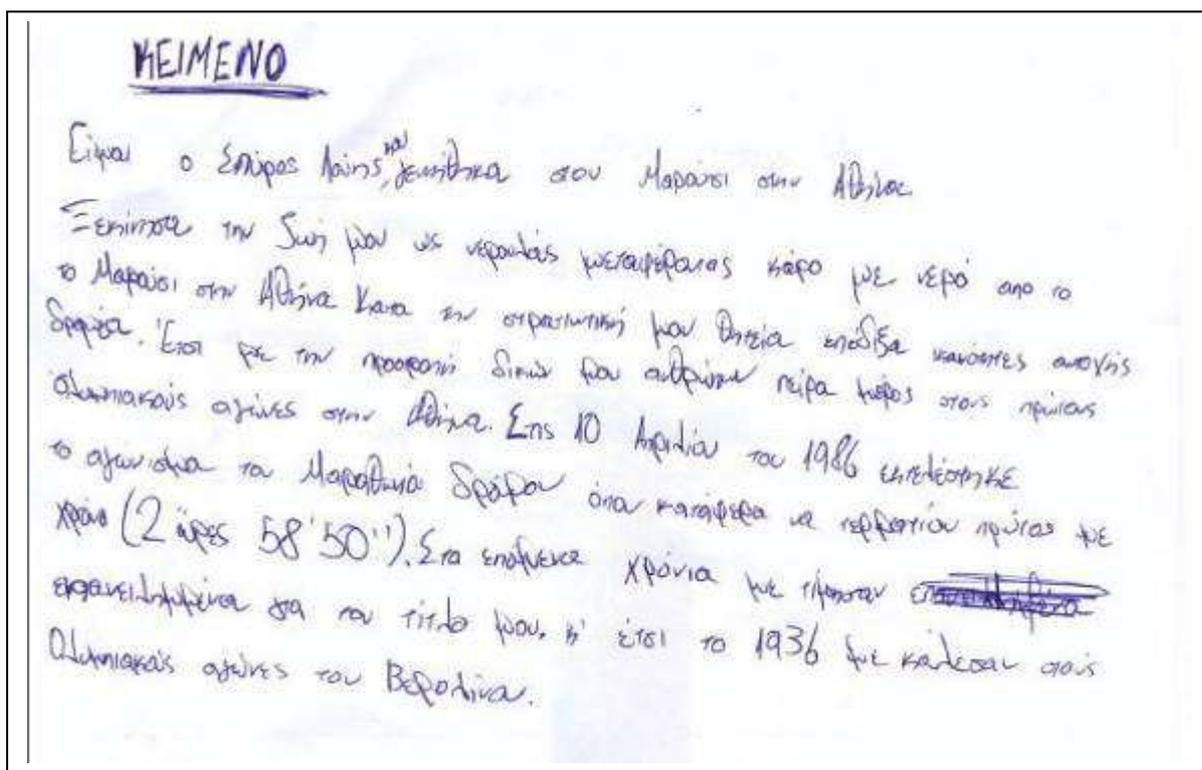 ΚΕΙΜΕΝΟ
Είμαι ο Σπύρος Λούης, και γεννήθηκα στου Μαρούσι στην Αθήνα.
Ξεκίνησα την ζωή μου ως νερουλάς μεταφέροντας κάρο με νερό απο το
το Μαρούσι στην Αθήνα Κατα την στρατιωτική μου θητεία επέδιξα ικανότητες αντοχής
δρομέα. Έτσι με την προτροπή δικών μου ανθρώπων πείρα μέρος στους πρώτους
Ολυμπιακούς αγώνες στην Αθήνα. Στις 10 Απριλίου του 1986 εκτελέστηκε
το αγώνισμα του Μαραθωνίου δρόμου όπου κατάφερα να τερματίσω πρώτος με
χρόνο (2 ώρες 58'50''). Στα επόμενα χρόνια με τίμησαν
επανειλημμένα για τον τίτλο μου. κ' έτσι το 1936 με κάλεσαν στούς
Ολυμπιακούς αγώνες του Βερολίνου.